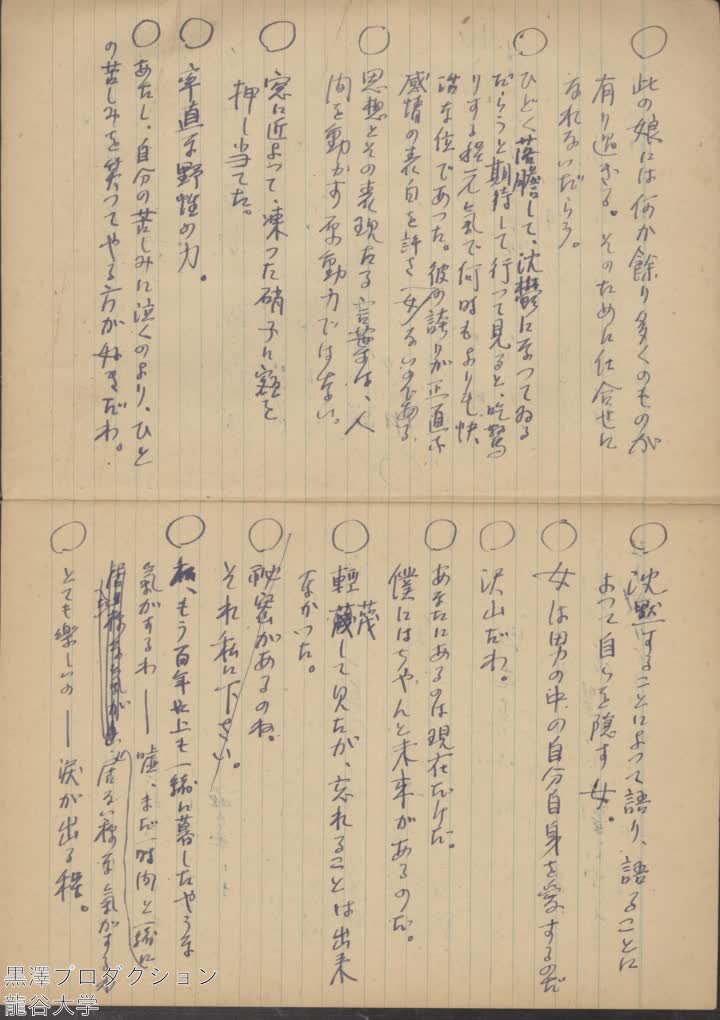 ○ 此の娘には何か餘り多くのものが
有り過ぎる。そのために仕合せに
なれないだらう。
○ ひどく落膽して、沈鬱になつてゐる
だらうと期待して行つて見ると、吃驚
りする程元氣で何時もよりも快
活な位であつた。彼の誇りが正直な
感情の表白を許さないのである
○ 思想とその表現たる言葉は、人
間を動かす原動力ではない。
○ 窓に近よつて、凍つた硝子に額を
押し当てた。
○ 率直な野性の力。
○ あたし、自分の苦しみに泣くのより、ひと
の苦しみを笑つてやる方が好きだわ。
○ 沈黙することによつて語り、語ることに
よつて自らを隠す女。
○ 女は男の中の自分自身を愛するのだ
○ 沢山だわ。
○ あなたにあるのは現在だけだ。
僕にはちやんと未来があるのだ。
○ 輕蔑して見たが、忘れることは出来
なかつた。
○ 秘密があるのね。
それ私に下さい。
○ 私、もう百年以上も一緒に暮したやうな
氣がするわ――嘘、まだ一時間と一緒に
居ない様な氣がする
○ とても樂しいの――涙が出る程。
黒澤プロダクション
龍谷大学